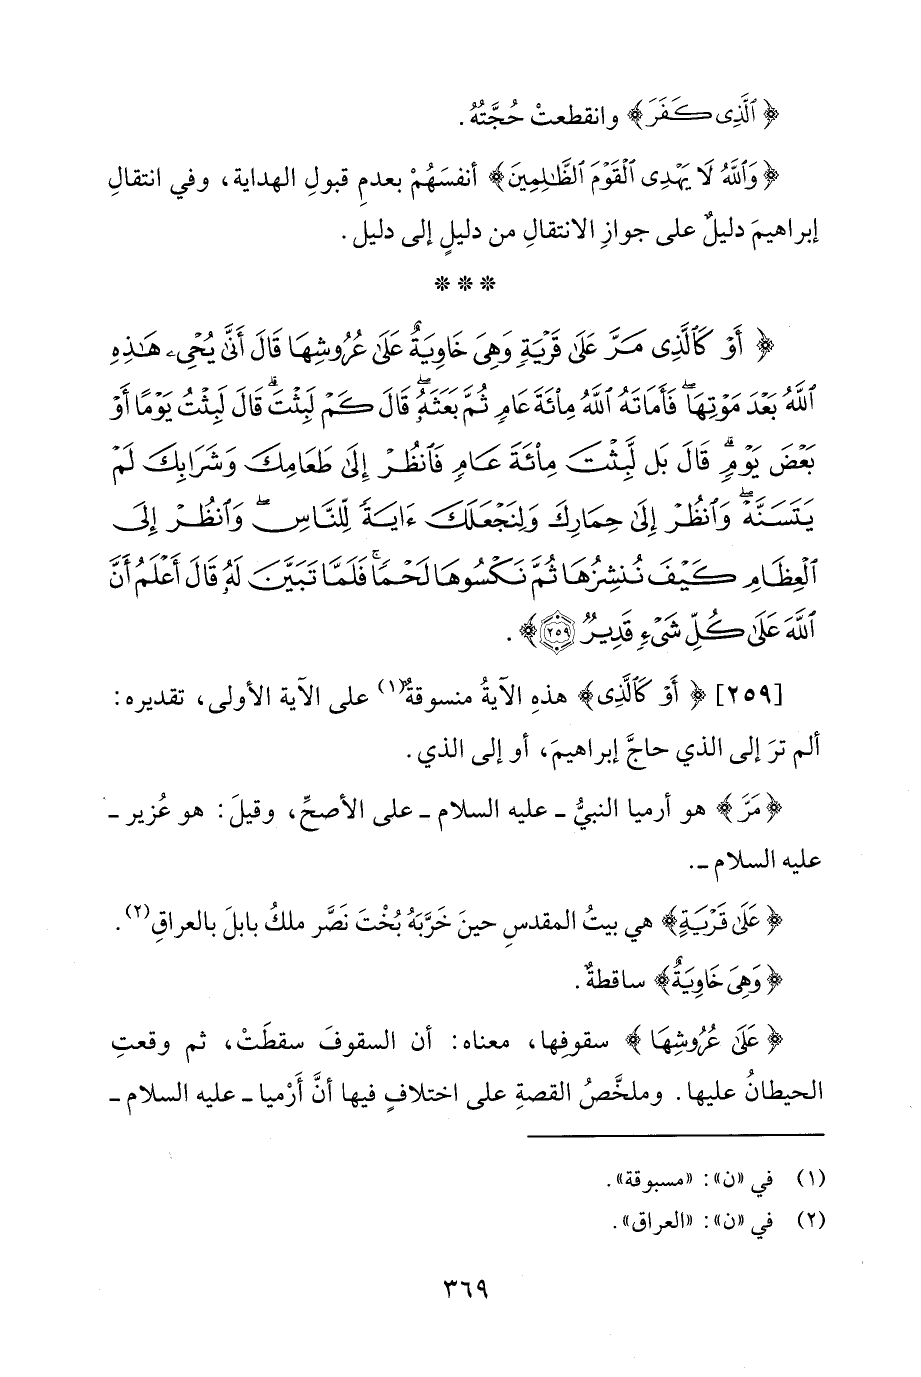 ﴿ ٱلَّذِى كَفَرَ﴾ وانقطعتْ حُجَّتُهُ.
﴿وَٱللَّهُ لَا يَهْدِى ٱلْقَوْمَ ٱلظَّٰلِمِينَ﴾ أنفسَهُمْ بعدمِ قبولِ الهداية، وفي انتقالِ
إبراهيمَ دليلٌ على جوازِ الانتقالِ من دليلٍ إلى دليل.
* * *
﴿ أَوْ كَٱلَّذِى مَرَّ عَلَىٰ قَرْيَةٍ وَهِىَ خَاوِيَةٌ عَلَىٰ عُرُوشِهَا قَالَ أَنَّىٰ يُحْىِۦ هَٰذِهِ
ٱللَّهُ بَعْدَ مَوْتِهَا ۖ فَأَمَاتَهُ ٱللَّهُ مِا۟ئَةَ عَامٍ ثُمَّ بَعَثَهُۥ ۖ قَالَ كَمْ لَبِثْتَ ۖ قَالَ لَبِثْتُ يَوْمًا أَوْ
بَعْضَ يَوْمٍ ۖ قَالَ بَل لَّبِثْتَ مِا۟ئَةَ عَامٍ فَٱنظُرْ إِلَىٰ طَعَامِكَ وَشَرَابِكَ لَمْ
يَتَسَنَّهْ ۖ وَٱنظُرْ إِلَىٰ حِمَارِكَ وَلِنَجْعَلَكَ ءَايَةً لِّلنَّاسِ ۖ وَٱنظُرْ إِلَى
ٱلْعِظَامِ كَيْفَ نُنشِزُهَا ثُمَّ نَكْسُوهَا لَحْمًا ۚ فَلَمَّا تَبَيَّنَ لَهُۥ قَالَ أَعْلَمُ أَنَّ
ٱللَّهَ عَلَىٰ كُلِّ شَىْءٍ قَدِيرٌ ۝٢٥٩﴾.
[٢٥٩] ﴿ أَوْ كَٱلَّذِى﴾ هذهِ الآيةُ منسوقةٌ(١) على الآية الأولى، تقديره:
ألم ترَ إلى الذي حاجَّ إبراهيمَ، أو إلى الذي.
﴿مَرَّ﴾ هو أرميا النبيُّ ـ عليه السلام ـ على الأصحِّ، وقيلَ: هو عُزير ـ
عليه السلام ـ.
﴿عَلَىٰ قَرْيَةٍ﴾ هي بيتُ المقدسِ حينَ خَرَّبَهُ بُخْتَ نَصَّر ملكُ بابلَ بالعراقِ(٢).
﴿وَهِىَ خَاوِيَةٌ﴾ ساقطةٌ.
﴿عَلَىٰ عُرُوشِهَا ﴾ سقوفِها، معناه: أن السقوفَ سقطَتْ، ثم وقعتِ
الحيطانُ عليها. وملخَّصُ القصةِ على اختلافٍ فيها أنَّ أَرْميا ـ عليه السلام ـ
(١) في «ن»: «مسبوقة».
(٢) في «ن»: «العراق».
٣٦٩